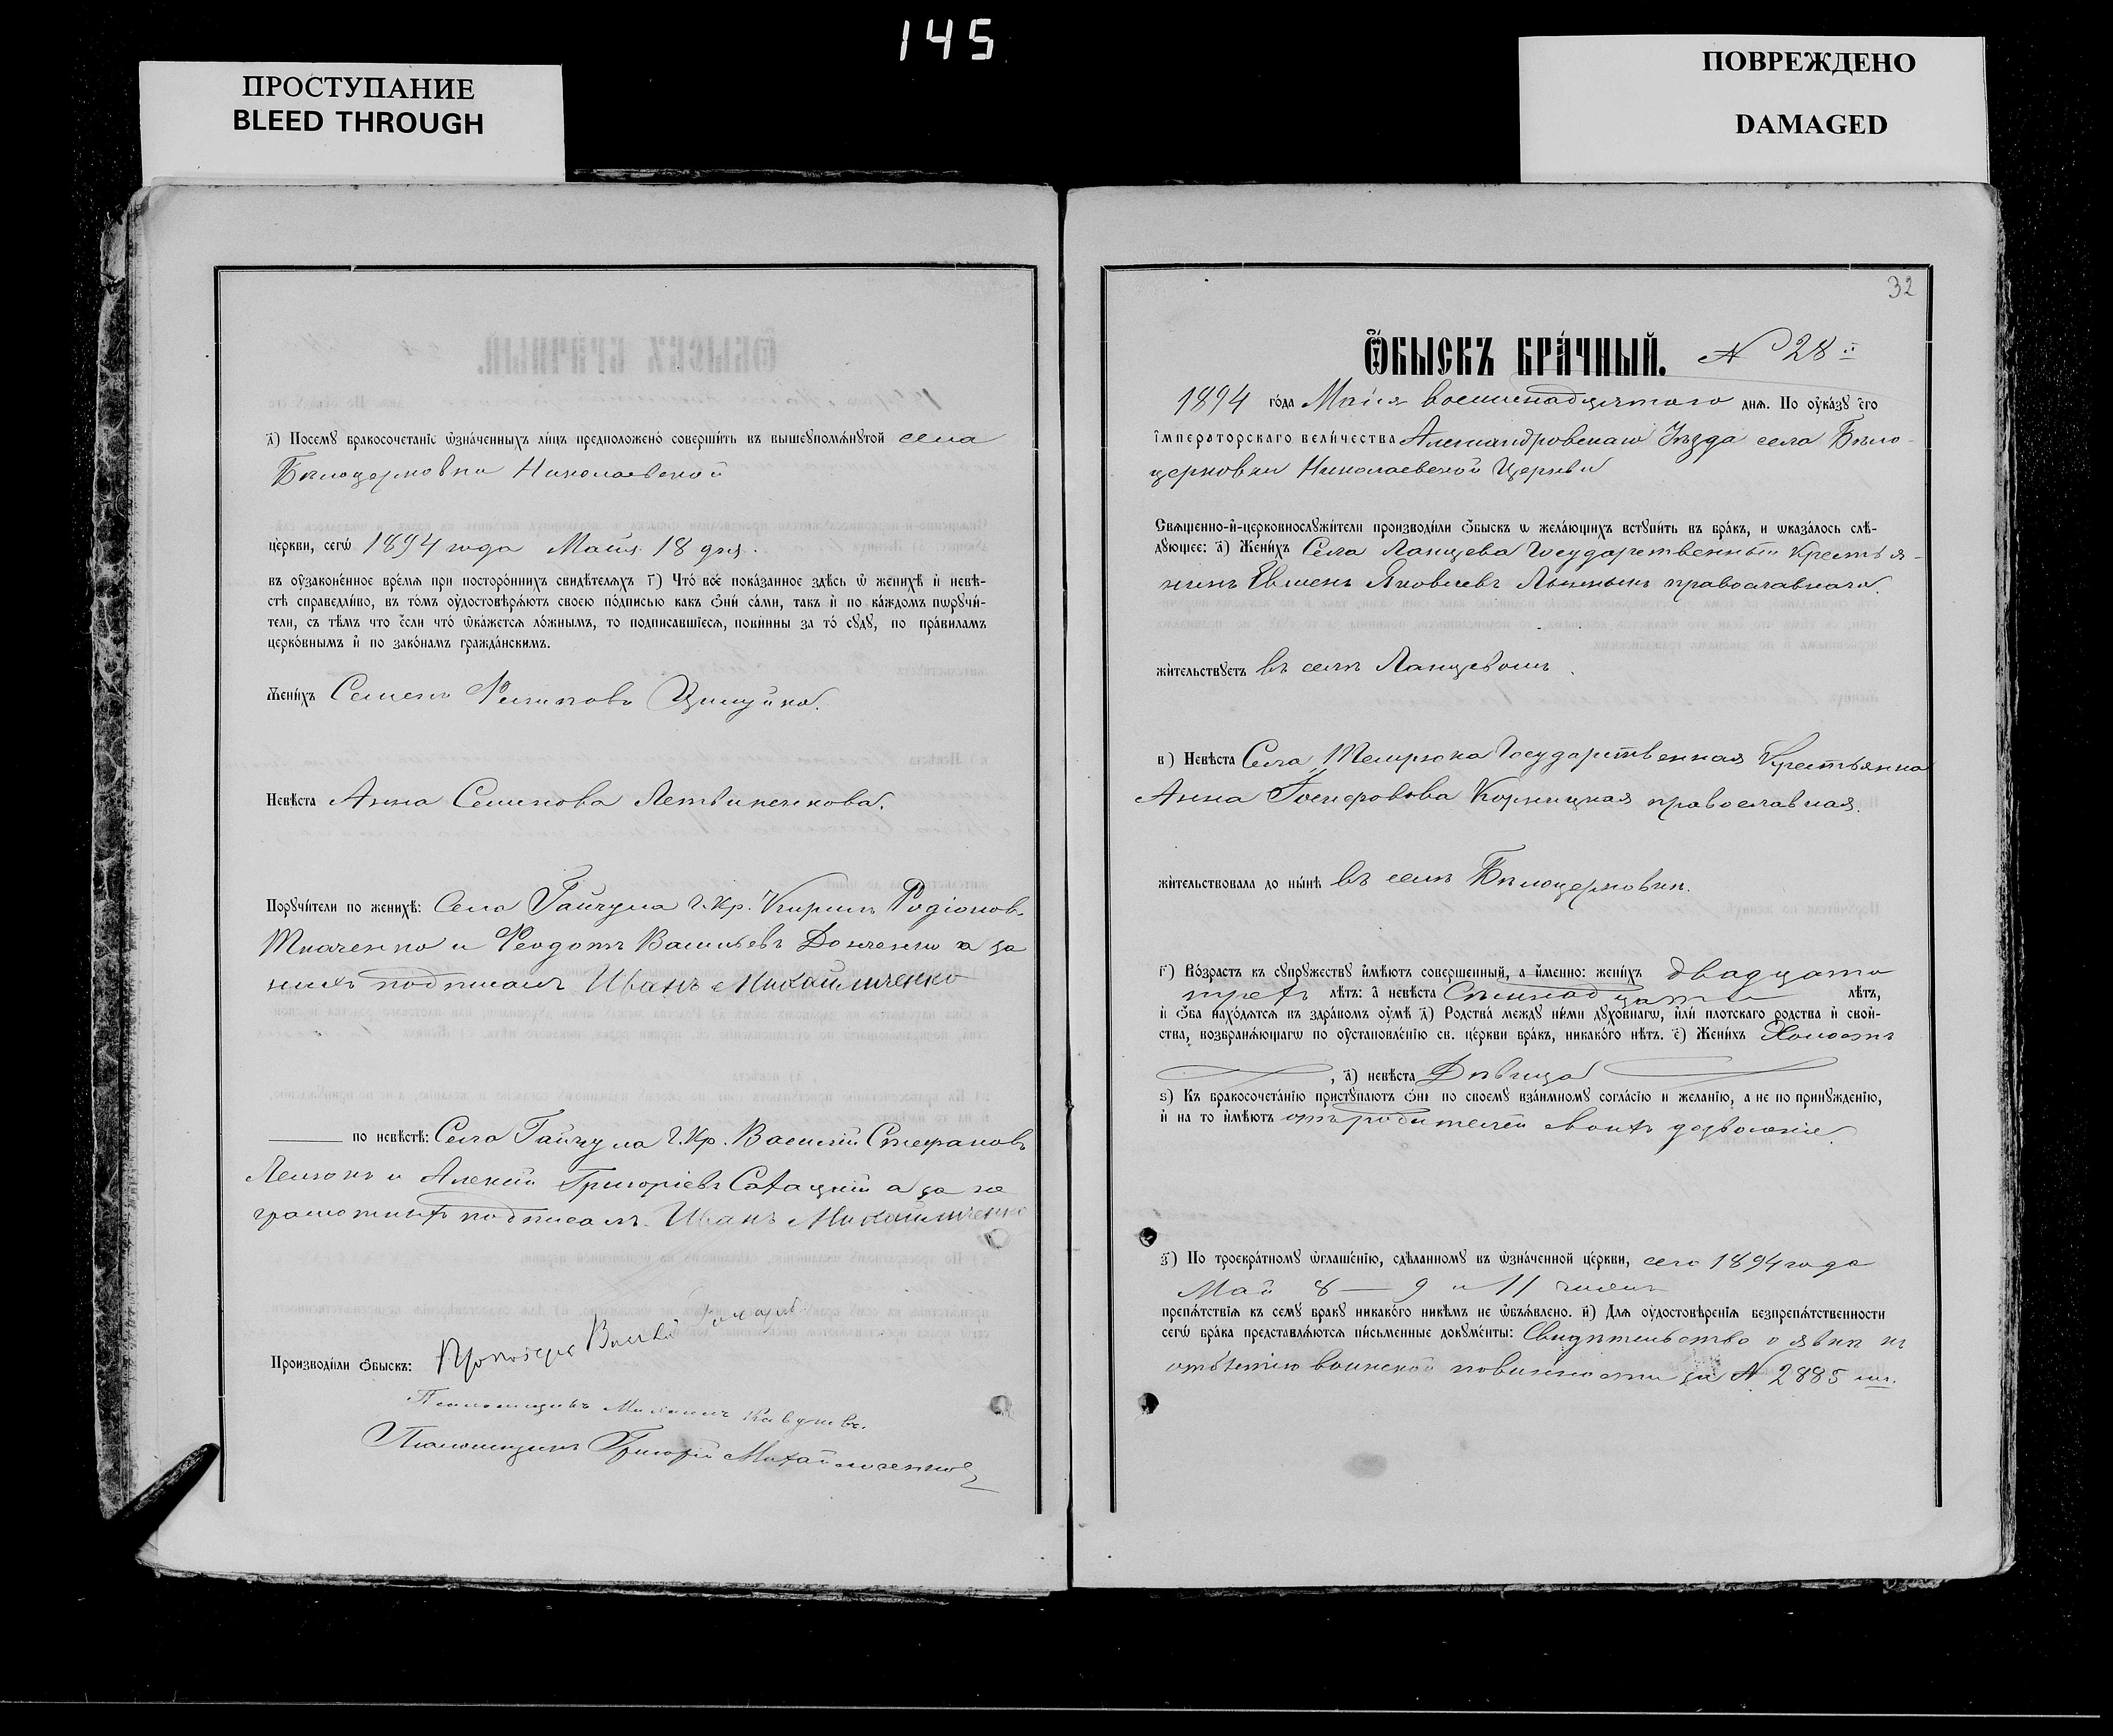 145
ПРОСТУПАНИЕ
BLEED THROUGH
ПОВРЕЖДЕНО
DAMAGED
а҃) Посему бракосочетаніе ѡзначенныхъ лицъ предположено совершить въ вышеупомянутой села
Бѣлоцерковки Николаевской
церкви, сегѡ 1894 года Маія 18 дня.
въ оузаконенное время при постороннихъ свидѣтеляхъ г҃) Что все показанное здѣсь ѡ женихѣ и невѣ-
стѣ справедливо, въ томъ оудостовѣряютъ своею подписью какъ ѻни сами, такъ и по каждомъ пѡручи-
тели, съ тѣмъ что если что ѡкажется ложнымъ, то подписавшіеся, повинны за то суду, по правиламъ
церковнымъ и по законамъ гражданскимъ.
Женихъ Семенъ Филиповъ
Невѣста Анна Семенова Летвиненкова.
Поручители по женихѣ: Села Гайчула Г. Кр. Кирилъ Родіоновъ
Ткаченко и Феодотъ Васильевъ Донченко а за
нихъ подписалъ Иванъ Михайличенко
по невѣстѣ: Села Гайчула Г. Кр. Василій Стефановъ
и Алексѣй Григоріевъ а за не
грамотныхъ подписалъ Иванъ Михайличенко
Производили ѻбыскъ: Василій
Псаломщикъ Михаилъ
Псаломщикъ Григорій Михайличенко
32
Ѻбыскъ брачный. N 28й
1894 года Маія восемнадцятаго дня. По оуказу его
императорскаго величества Александровскаго Уѣзда села Бѣло-
церковки Николаевской Церкви
Священно-и-церковнослужители производили ѻбыскъ ѡ желающихъ вступить въ бракъ, и ѡказалось слѣ-
дующее: а҃) Женихъ Села Ланцева Государственный крестья-
нинъ Евменъ Яковлевъ православнаго.
жительствуетъ въ селѣ Ланцевомъ.
в҃) Невѣста Села Темрюка Государственная Крестьянка
Анна Іосифовова Корницкая православная.
жительствовала до нынѣ въ селѣ Бѣлоцерковки.
г҃) Возрастъ къ супружеству имѣютъ совершенный, а именно: женихъ двадцати
трехъ лѣтъ: а невѣста Семнадцати лѣтъ,
и ѻба находятся въ здравомъ оумѣ д҃) Родства между ними духовнагѡ, или плотскаго родства и свой-
ства, возбраняющагѡ по оустановленію св. церкви бракъ, никакого нѣтъ. е҃) Женихъ Холостъ
, а҃) невѣста Дѣвица
ѕ҃) Къ бракосочетанію приступаютъ ѻни по своему взаимному согласію и желанію, а не по принужденію,
и на то имѣютъ отъ родителей своихъ дозволеніе.
з҃) По троекратному ѡглашенію, сдѣланному въ ѡзначенной церкви, сего 1894 года
Май 8 — 9 и 11 чиселъ
препятствія къ сему браку никакого никѣмъ не ѡбъявлено. и҃) Для оудостовѣренія безпрепятственности
сегѡ брака представляются письменные документы: Свидѣтельство о явкѣ къ
отбытію воинской повинности за N 2885 мъ.